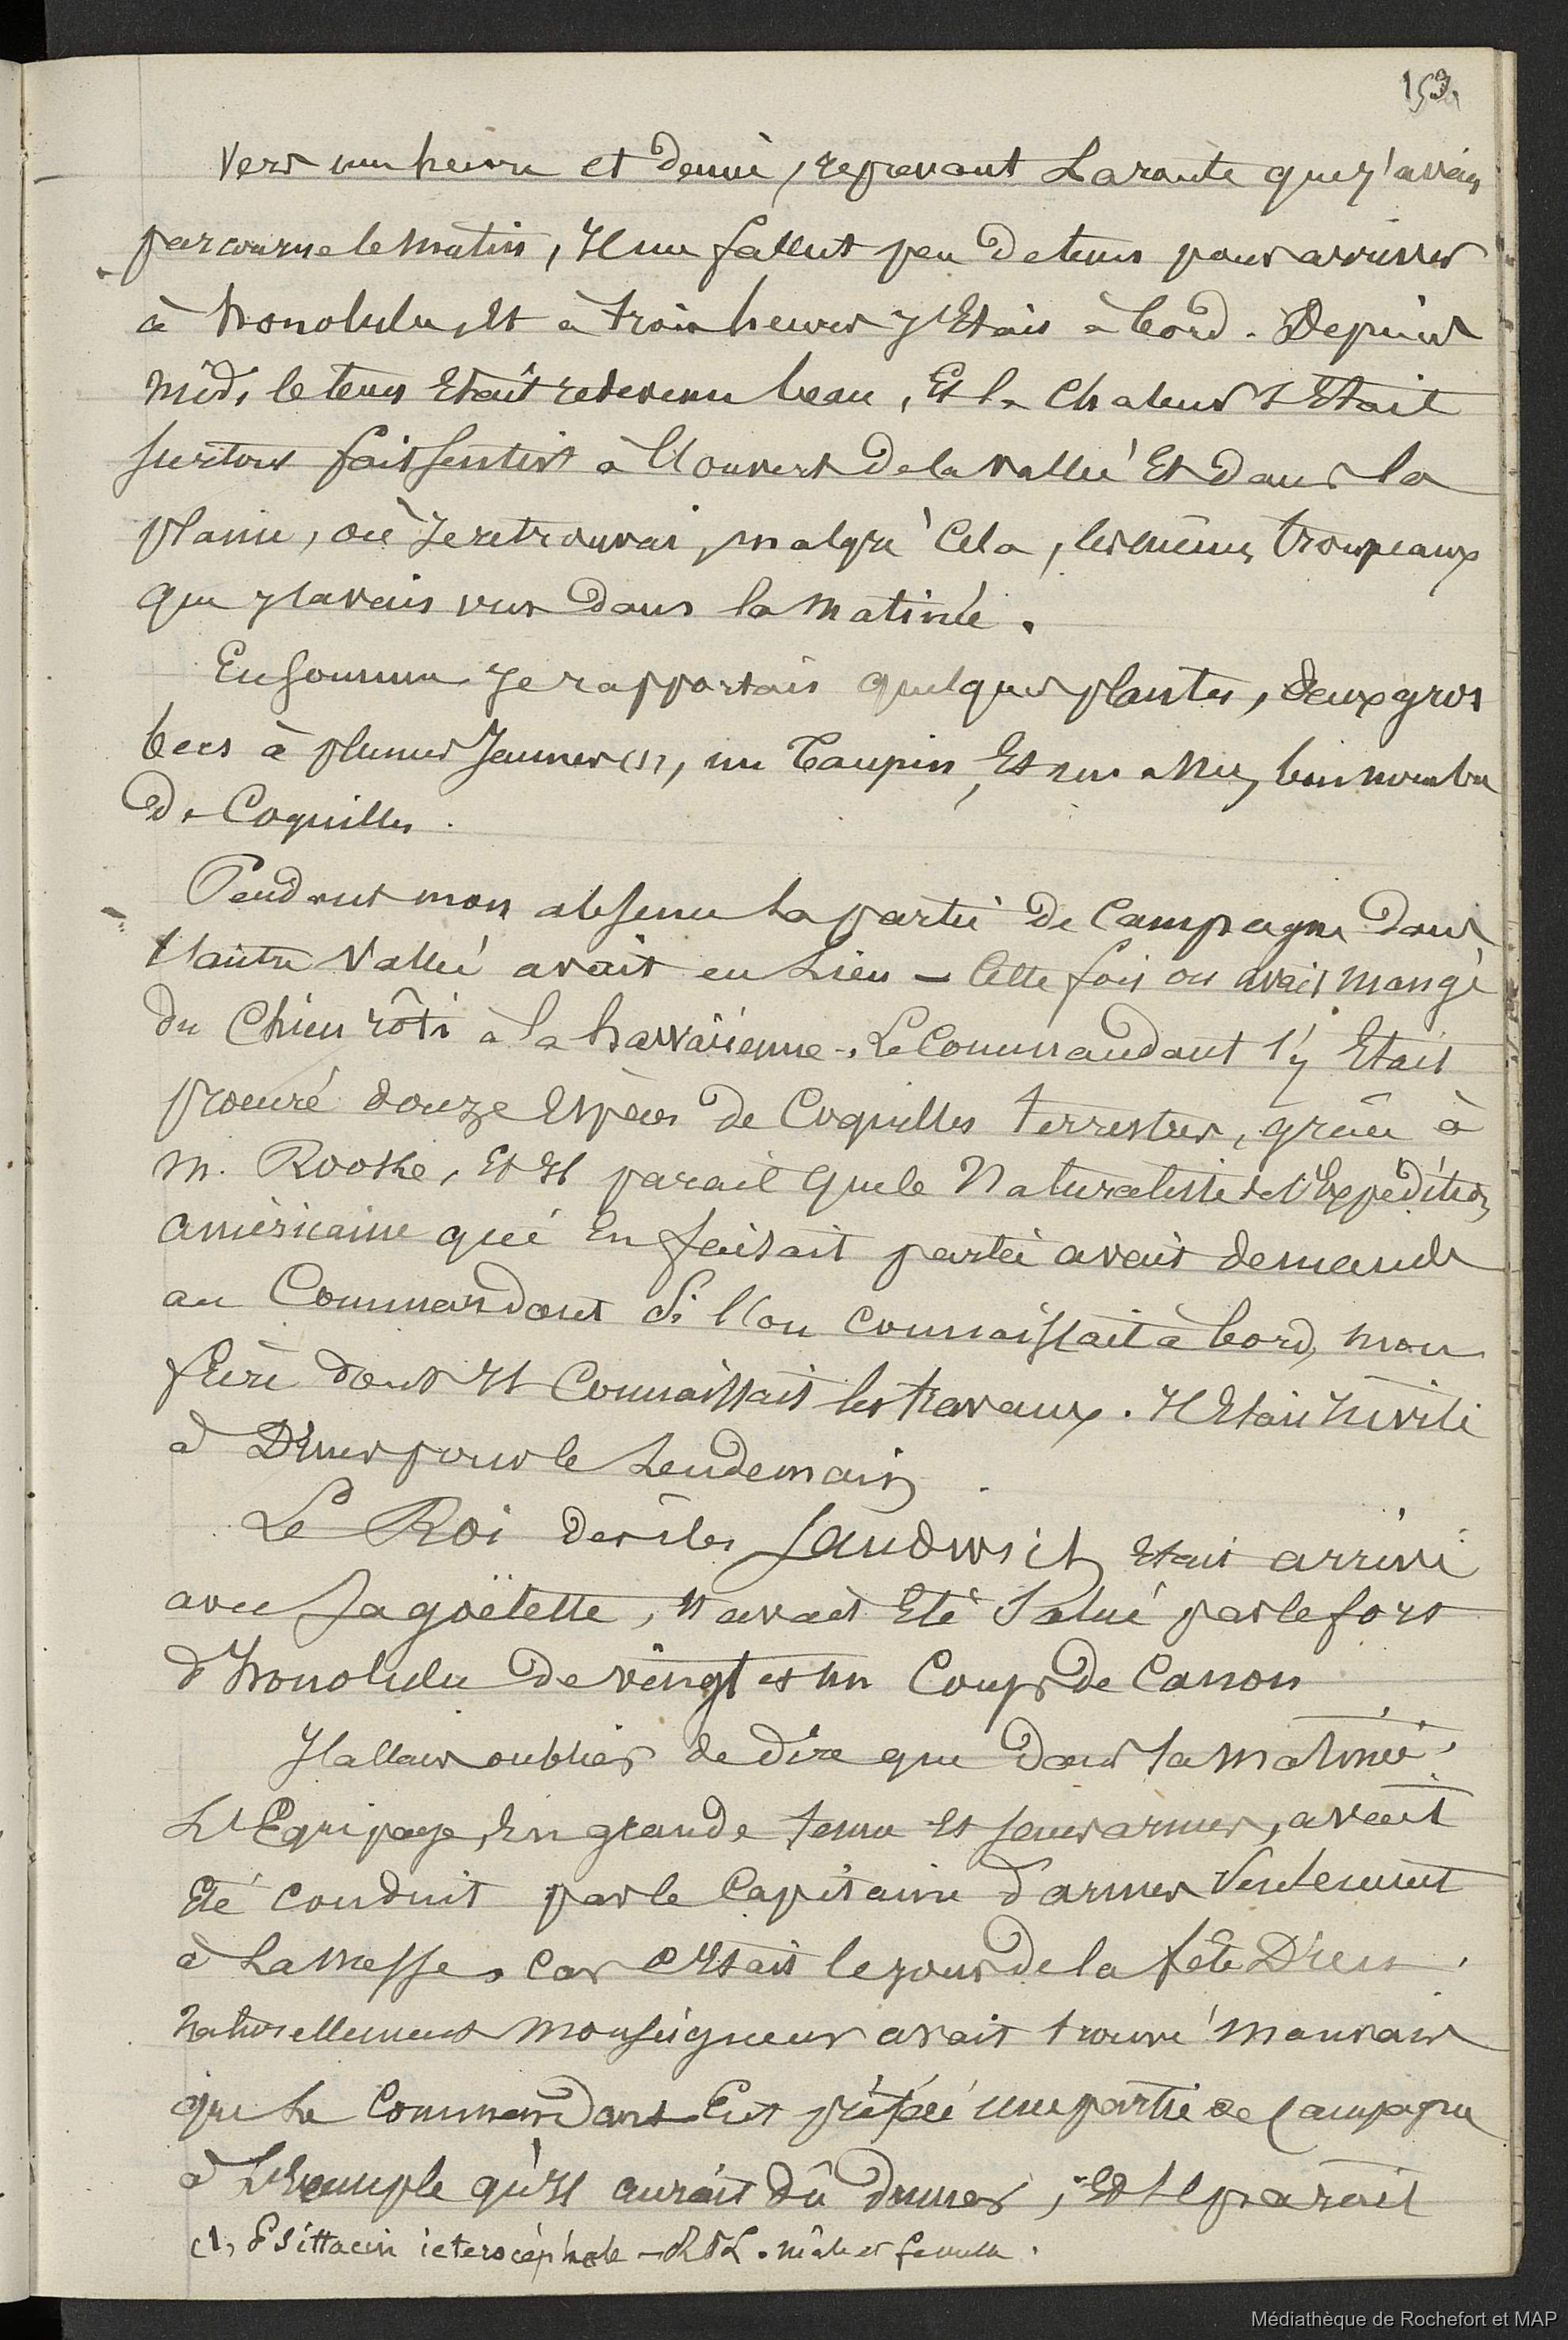 153
Vers une heure et demie, reprenant La route que j'avais
parcourue le matin, Il me fallut peu de tems pour arriver
à honolulu, Et à trois heures j'Etais à bord. Depuis
midi le tems Etait redevenu beau, Et la Chaleur s'Etait
surtout fait sentir à l'ouvert de la vallée Et dans la
plaine, où Je retrouvai, malgré Cela, les mêmes troupeaux
que j'avais vus dans la matinée.
En somme Je rapportais quelques plantes, deux gros
becs à plumes Jaunes (1), un Taupin, Et un bon nombre
De Coquilles.
Pendant mon absence La partie de Campagne dans
l'autre Vallée avait eu Lieu – Cette fois on avait mangé
du Chien rôti à la havaïenne. Le Commandant s'y Etait
procuré douze Espèces de Coquilles terrestres, grâce à
M. Rooke, Et Il parait que le Naturaliste de l'Expédition
américaine qui En faisait partie avait demandé
au Commandant Si l'on connaissait à bord, mon
frère dont Il Connaissait les travaux. Il Etait Invité
à Diner pour le Lendemain.
Le Roi des îles Sandwich Etait arrivé
avec Sa goëlette, Il avait Eté Salué par le fort
d'honolulu de vingt et un Coups de Canon
J'allais oublier de dire que dans la matinée,
L'Equipage, En grande tenue Et sans armes, avait
Eté conduit par le Capitaine d'armes
à La messe, car C'Etait le jour de la fête Dieu.
Naturellement monseigneur avait trouvé mauvais
que Le Commandant Eut préféré une partie de Campagne
à L'Exemple qu'Il aurait dû donner, Et Il parait
(1) Psittacin icterocéphale – mâle et femelle.
Médiathèque de Rochefort et MAP